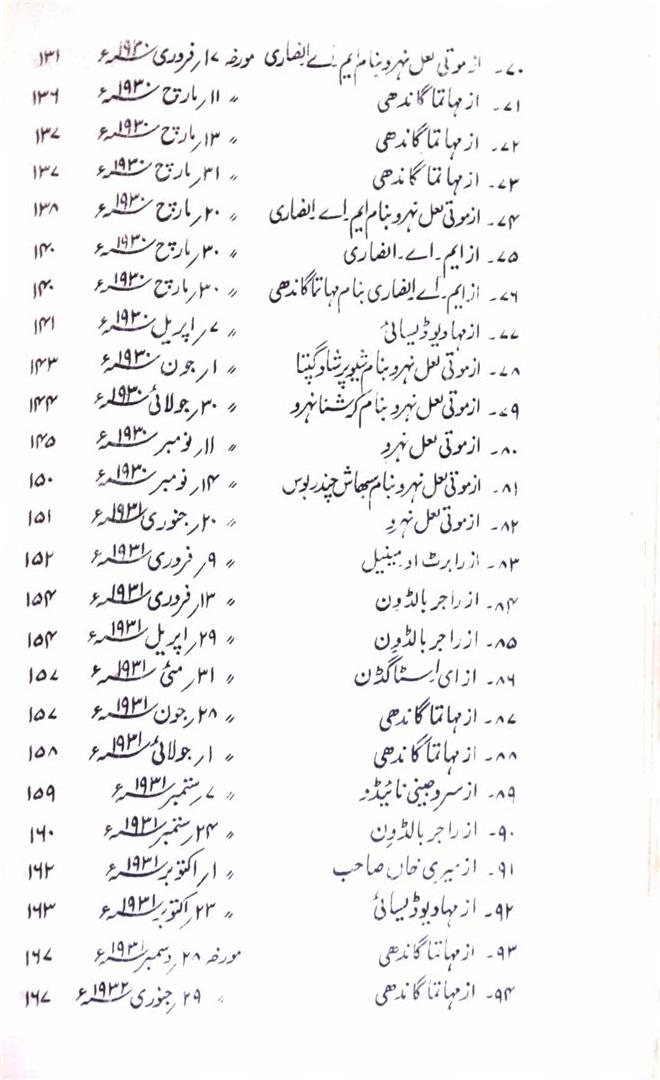 ۷۰۔ از موتی لعل نہرو بنام ایم اے انصاری مورخہ ۱۷؍ فروری ۱۹۳۰ء ۱۳۱
۷۱۔ از مہاتما گاندھی 〃 ۱۱؍ مارچ ۱۹۳۰ء ۱۳۶
۷۲۔ از مہاتما گاندھی 〃 ۱۳؍ مارچ ۱۹۳۰ء ۱۳۷
۷۳۔ از مہاتما گاندھی 〃 ۳۱؍ مارچ ۱۹۳۰ء ۱۳۷
۷۴۔ از موتی لعل نہرو بنام ایم اے انصاری 〃 ۲۰؍ مارچ ۱۹۳۰ء ۱۳۸
۷۵۔ از ایم۔ اے۔ انصاری 〃 ۳۰؍ مارچ ۱۹۳۰ء ۱۴۰
۷۶۔ از ایم۔ اے انصاری بنام مہاتما گاندھی 〃 ۳۰؍ مارچ ۱۹۳۰ء ۱۴۰
۷۷۔ از مہادیو ڈیسائی 〃 ۷؍ اپریل ۱۹۳۰ء ۱۴۱
۷۸۔ از موتی لعل نہرو بنام شیو پرشاد گپتا 〃 ۱؍ جون ۱۹۳۰ء ۱۴۳
۷۹۔ از موتی لعل نہرو بنام کرشنا نہرو 〃 ۳۰؍ جولائی ۱۹۳۰ء ۱۴۴
۸۰۔ از موتی لعل نہرو 〃 ۱۱؍ نومبر ۱۹۳۰ء ۱۴۵
۸۱۔ از موتی لعل نہرو بنام سبھاش چندر بوس 〃 ۱۴؍ نومبر ۱۹۳۰ء ۱۵۰
۸۲۔ از موتی لعل نہرو 〃 ۲۰؍ جنوری ۱۹۳۱ء ۱۵۱
۸۳۔ از رابرٹ او مینیل 〃 ۹؍ فروری ۱۹۳۱ء ۱۵۲
۸۴۔ از راجر بالڈون 〃 ۱۳؍ فروری ۱۹۳۱ء ۱۵۴
۸۵۔ از راجر بالڈون 〃 ۲۹؍ اپریل ۱۹۳۱ء ۱۵۴
۸۶۔ از ای اسٹاگڈن 〃 ۳۱؍ مئی ۱۹۳۱ء ۱۵۷
۸۷۔ از مہاتما گاندھی 〃 ۲۸؍ جون ۱۹۳۱ء ۱۵۷
۸۸۔ از مہاتما گاندھی 〃 ۱؍ جولائی ۱۹۳۱ء ۱۵۸
۸۹۔ از سروجینی نائیڈو 〃 ۷؍ ستمبر ۱۹۳۱ء ۱۵۹
۹۰۔ از راجر بالڈون 〃 ۲۴؍ ستمبر ۱۹۳۱ء ۱۶۰
۹۱۔ از میری خاں صاحب 〃 ۱؍ اکتوبر ۱۹۳۱ء ۱۶۲
۹۲۔ از مہادیو ڈیسائی 〃 ۲۳؍ اکتوبر ۱۹۳۱ء ۱۶۳
۹۳۔ از مہاتما گاندھی مورخہ ۲۸؍ دسمبر ۱۹۳۱ء ۱۶۷
۹۴۔ از مہاتما گاندھی 〃 ۲۹؍ جنوری ۱۹۳۲ء ۱۶۷